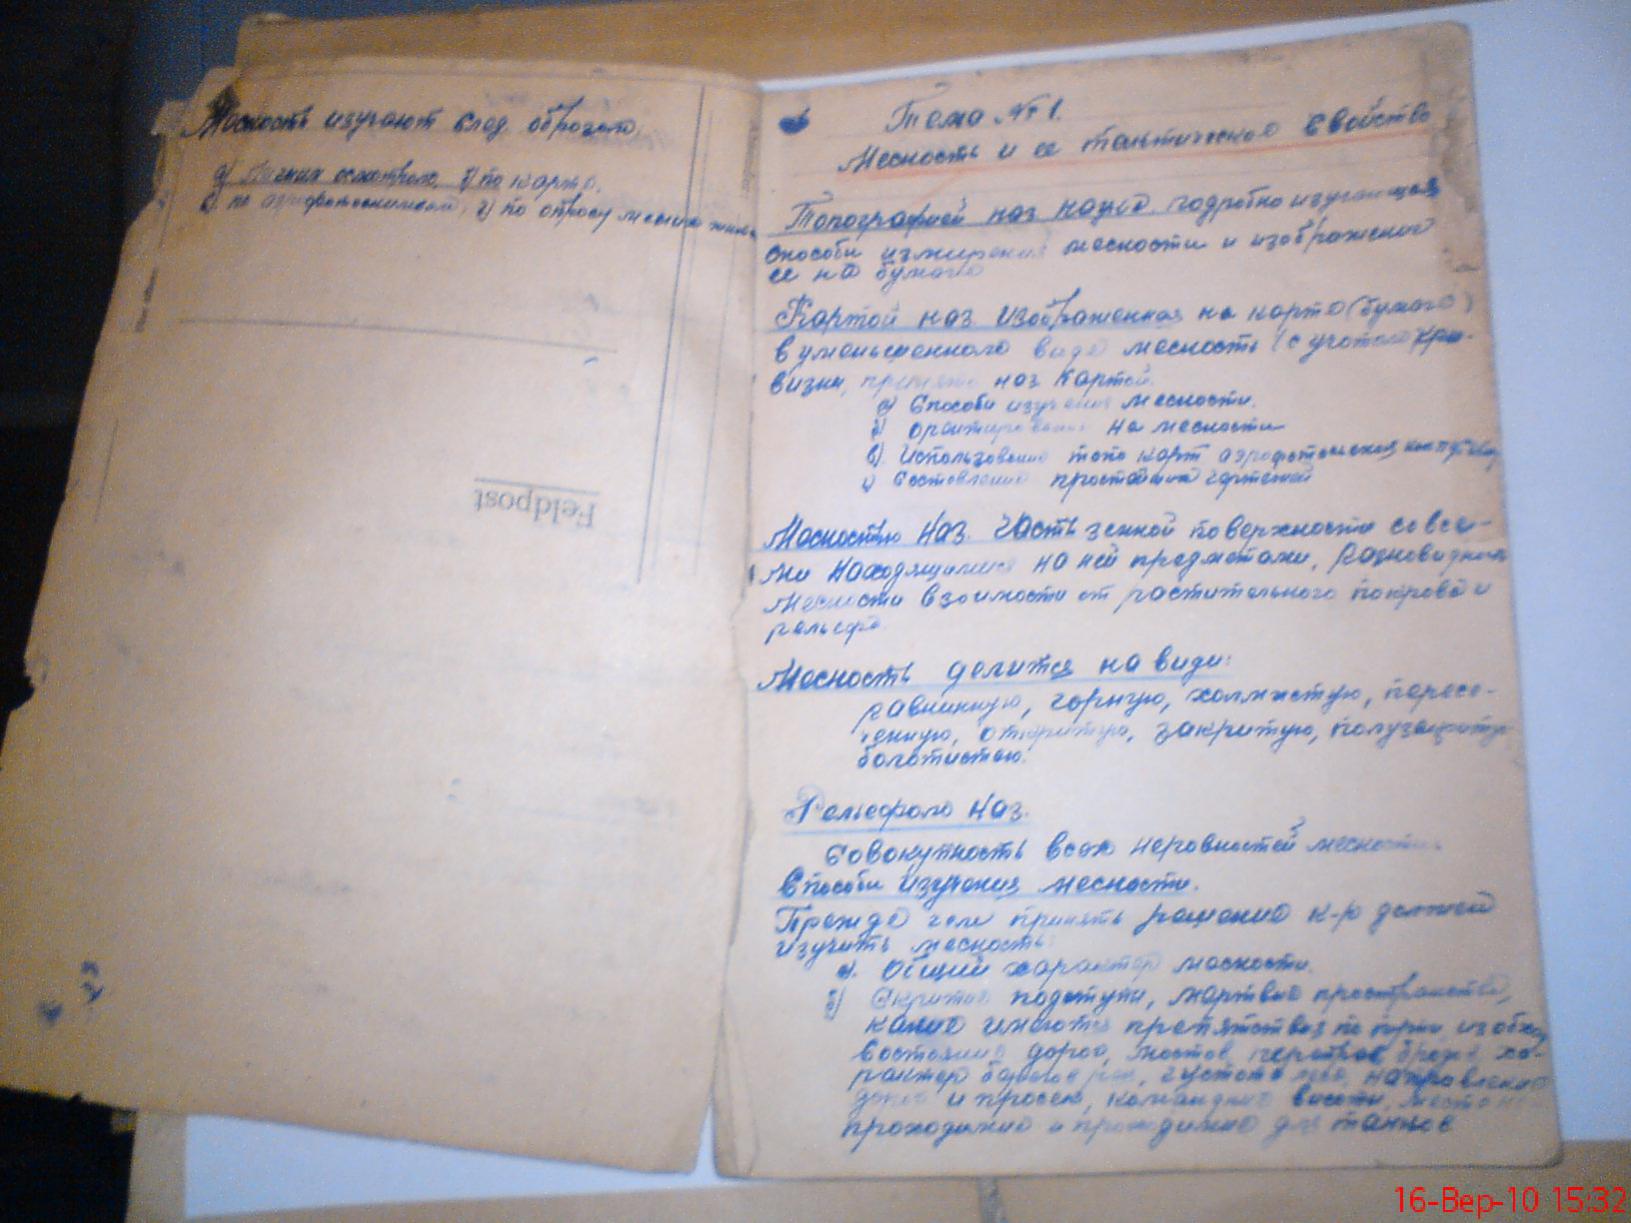 Месность изучают след. образом.
а) Личним осмотром, б) по карте.
в) по аэрофотоснимкам, г) по опросу месних
Feldpost
Тема № 1.
Месность и ее тактическое свойство
Топографией наз наука подробно изучающая
способи измирения месности и изображение
ее на бумаге
Картой наз изображенная на карте (бумаге)
в уменьшенном виде месность (с учотом кри-
визни, наз картой.
а) Способи изучения месности.
б) орентирование на месности
в). Использование топо карт аэрофотоснимков
г) Составление простейших чертежей
Месностью наз. часть земной поверхности со все-
ми находящимися на ней предметами, разновидность
месности взависмости от растительного покрова и
рельефа.
Месность делится на види:
равнинную, горную, холмистую, пересе-
ченную, откритую, закритую, полузакритую
болотистою.
Рельефом наз.
Совокупность всех неровностей месности.
Способи изучения месности.
Прежде чем принять решение к-р должен
изучить месность:
а). Общий характер месности.
б) Скритие подступи, мертвие пространства,
какие имеются препятствия
состояние дорог, мостов, бродов, ха-
рактер рек, густота леса, направление
дорог и просек, командние висоти, места не
проходимие и проходимие для танков
16-Вер-10 15:32